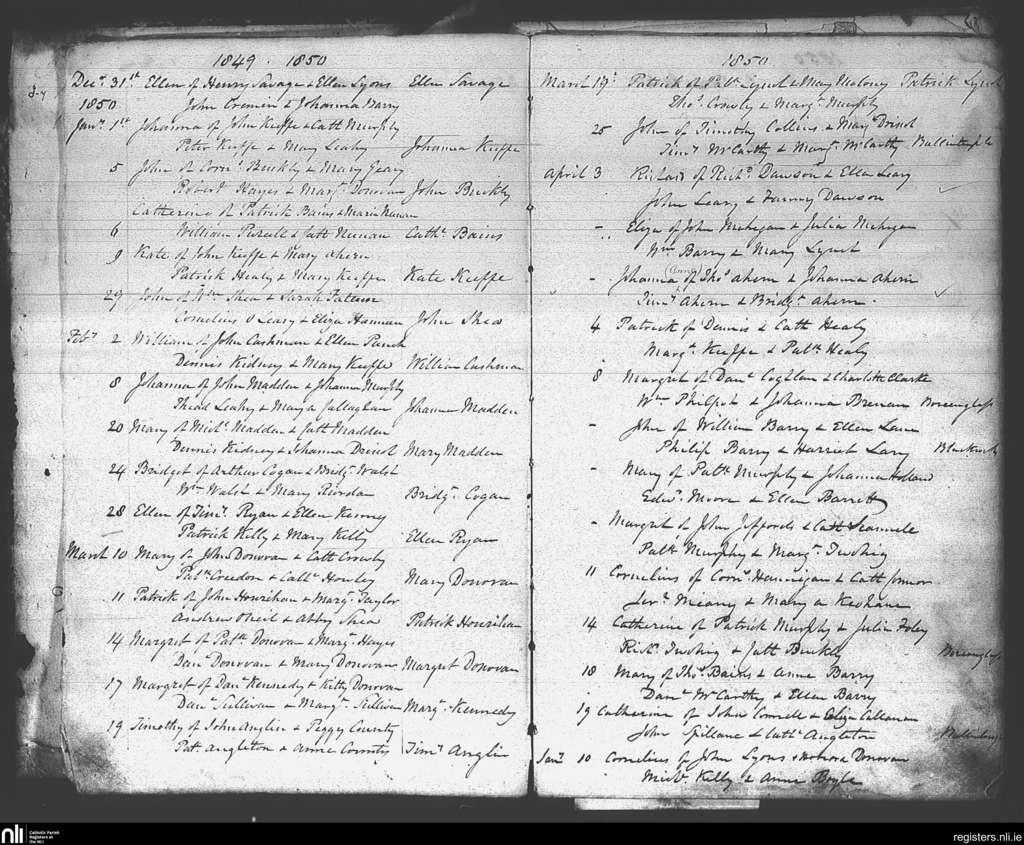 1849 . 1850
Decr. 31st Ellen of Henry Savage & Ellen Lyons Ellen Savage
1850 John Cremin & Johanna Barry
Jany. 1st Johanna of John Kieffe & Cath Murphy
Peter Kieffe & Mary Leahy Johanna Kieffe
5 John of Corns. Buckly & Mary Geary
Robert Hayes & Margt. Donovan John Buckly
Catherine of Patrick Bains & Maria Nunan
6 William Purcell & Cath Nunan Cathe. Bains
9 Kate of John Kieffe & Mary Ahern
Patrick Healy & Mary Kieffe Kate Kieffe
29 John of Wm Shea & Sarah
Cornelius O Leary & Eliza Hannan John Shea
Feby. 2 William of John Cashman & Ellen
Dennis Kidney & Mary Kieffe William Cashman
8 Johanna of John Madden & Johanna Murphy
Thad Leahy & Mary a Callaghan Jhanna Madden
20 Mary of Michl. Madden & Cath Madden
Dennis Kidney & Johanna Drisol Mary Madden
24 Bridget of Arthur Cogan & Bridgt. Walsh
Wm. Walsh & Mary Riordan Bridgt. Cogan
28 Ellen of Timy. Ryan & Ellen Kenney
Patrick Kelly & Mary Kelly Ellen Ryan
March 10 Mary of John Donovan & Cath Crowly
Patk. Creedon & Cathe. Howley Mary Donovan
11 Patrick of John Hourihan & Margt. Taylor
Andrew Oneil & Abby Shea Patrick Hourihan
14 Margret of Patk. Donovan & Margt. Hayes
Danl Donovan & Mary Donovan Margret Donovan
17 Margret of Danl. Kennedy & Kitty Donovan
Danl. Sullivan & Margt. Sullivan Margt. Kennedy
19 Timothy of John Anglin & Peggy County
Pat. Angleton & Anne County Timy. Anglin
1850
March 19 Patrick of Patk. Lynch & Mary Maloney Patrick Lynch
Thos. Crowly & Margt. Murphy
25 John of Timothy Collins & Mary Drisol
Timy. McCarthy & Margt. McCarthy Ballintemple
April 3 Richard of Richd. Dawson & Ellen Leary
John Leary & Fanny Dawson
- Eliza of John Mehegan & Julia Mehigan
Wm. Barry & Mary Lynch
- Johanna of Thos Ahern & Johanna Ahern
Timy. Ahern & Bridgt. Ahern.
4 Patrick of Dennis & Cath Healy
Margt. Kieffe & Patk. Healy
8 Margret of Danl. Coghlan & Charlotte Clarke
Wm. Philpot & Johanna Brenan
- John of William Barry & Ellen Lane
Philip Barry & Harriet Lary
- Mary of Patk Murphy & Johanna Holland
Edwd. Moore & Ellen Barrett
- Margret of John Jeffords & Cath
Patk Murphy & Margt. Twohig
11 Cornelius of Corns. Hannigan & Cath Connor
Jerh. Meany & Mary a Keohane
14 Catherine of Patrick Murphy & Julia Foley
Richd. Twohig & Cath Buckly
18 Mary of Thos. Bains & Anne Barry
Danl. McCarthy & Ellen Barry
19 Catherine of John Connell & Eliza Callanan
John Spillane & Cathe. Angleton
Jany. 10 Cornelius of John Lyons & Honora Donovan
Michl. Kelly & Anne Boyle
nli Catholic Parish
Registers at
the NLI
registers.nli.ie